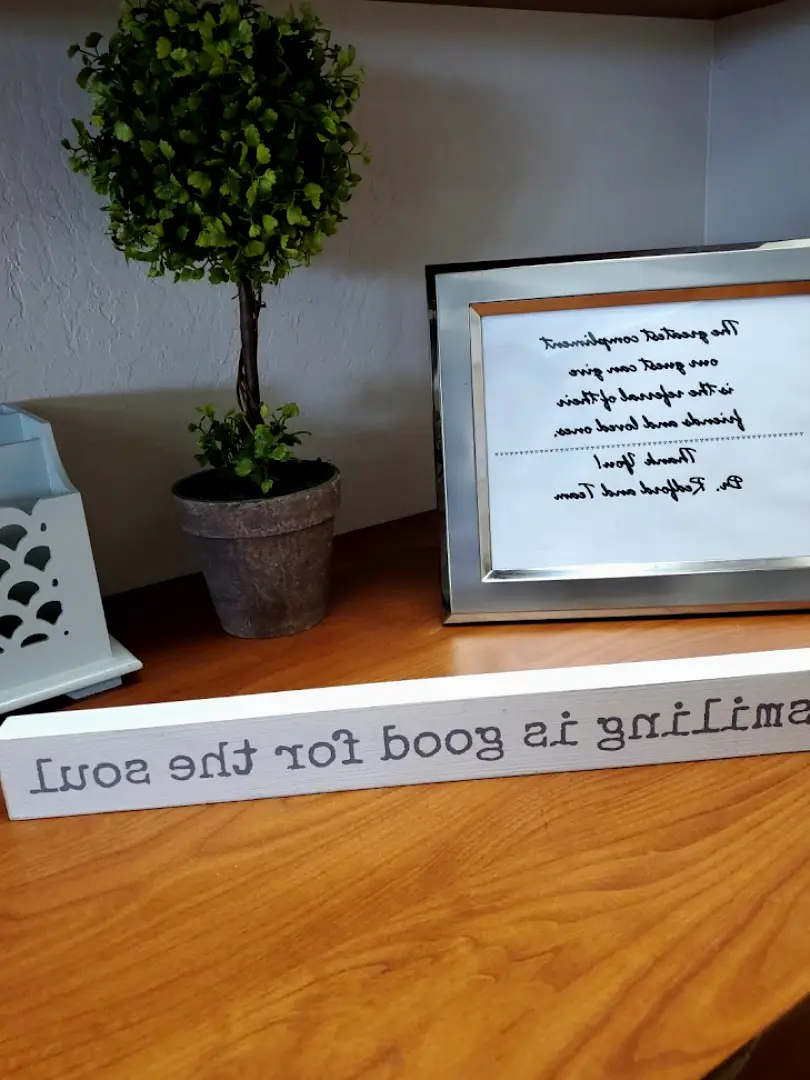 The greatest compliment
our guest can give
is the referral of their
friends and loved ones.
Thank You!
Dr. Redford and Team
smiling is good for the soul